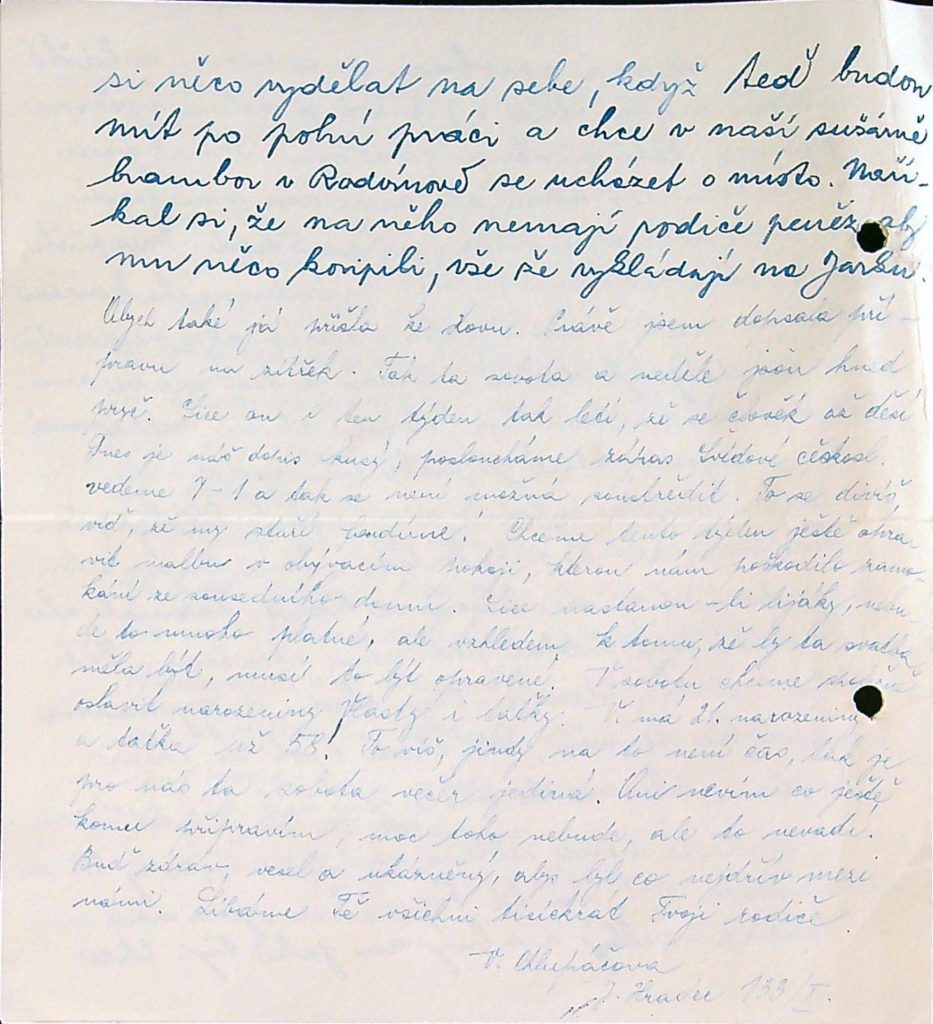 si něco vydělat na sebe, když teď budou
mít po polní práci a chce v naší sušárně
brambor v Radvínově se ucházet o místo. Naří-
kal si, že na něho nemají rodiče peněz, aby
mu něco koupili, vše že vykládají na Jarku.
Abych také já přišla ke slovu. Právě jsem dopsala pří-
pravu na zítřek. Tak ta sobota a neděle jsou hned
pryč. Sice on i ten týden tak letí, že se člověk až děsí
Dnes je náš dopis kusý, posloucháme zápas Švédové českosl.
vedeme 7-1 a tak se není možná soustředit. To se divíš
viď, že my staří fandíme! Chceme tento týden ještě opra-
vit malbu v obývacím pokoji, kterou nám poškodilo zamo-
kání ze sousedního domu. Sice nastanou-li lijáky, nebu-
de to mnoho platné, ale vzhledem k tomu, že by ta svatba
měla být, musí to být opravené. V sobotu chceme
oslavit narozeniny Vlasty i taťky. V. má 21. narozeniny
a taťka už 58! To víš, jindy na to není čas, tak je
pro nás ta sobota večer jediná. Ani nevím co ještě,
komu připravím, moc toho nebude, ale to nevadí.
Buď zdráv, vesel a ukázněný, abys byl co nejdřív mezi
námi. Líbáme Tě všichni tisíckrát Tvoji rodiče
V. Chlupáčova
J. Hradec 133/I.